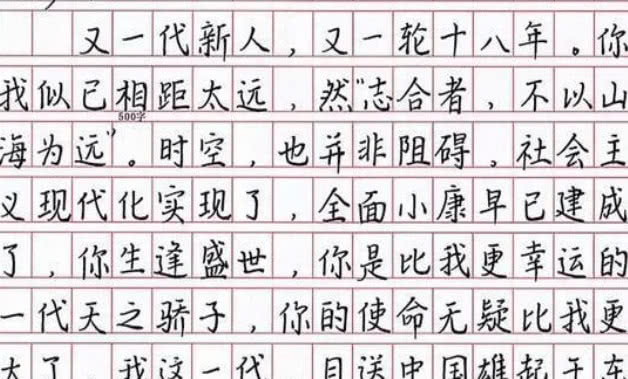 又一代新人，又一轮十八年。你
我似已相距太远，然“志合者，不以山
500字
海为远”。时空，也并非阻碍。社会主
义现代化实现了，全面小康早已建成
了，你生逢盛世，你是比我更幸运的
一代天之骄子，你的使命无疑比我更
大了。我这一代，目送中国雄起于东